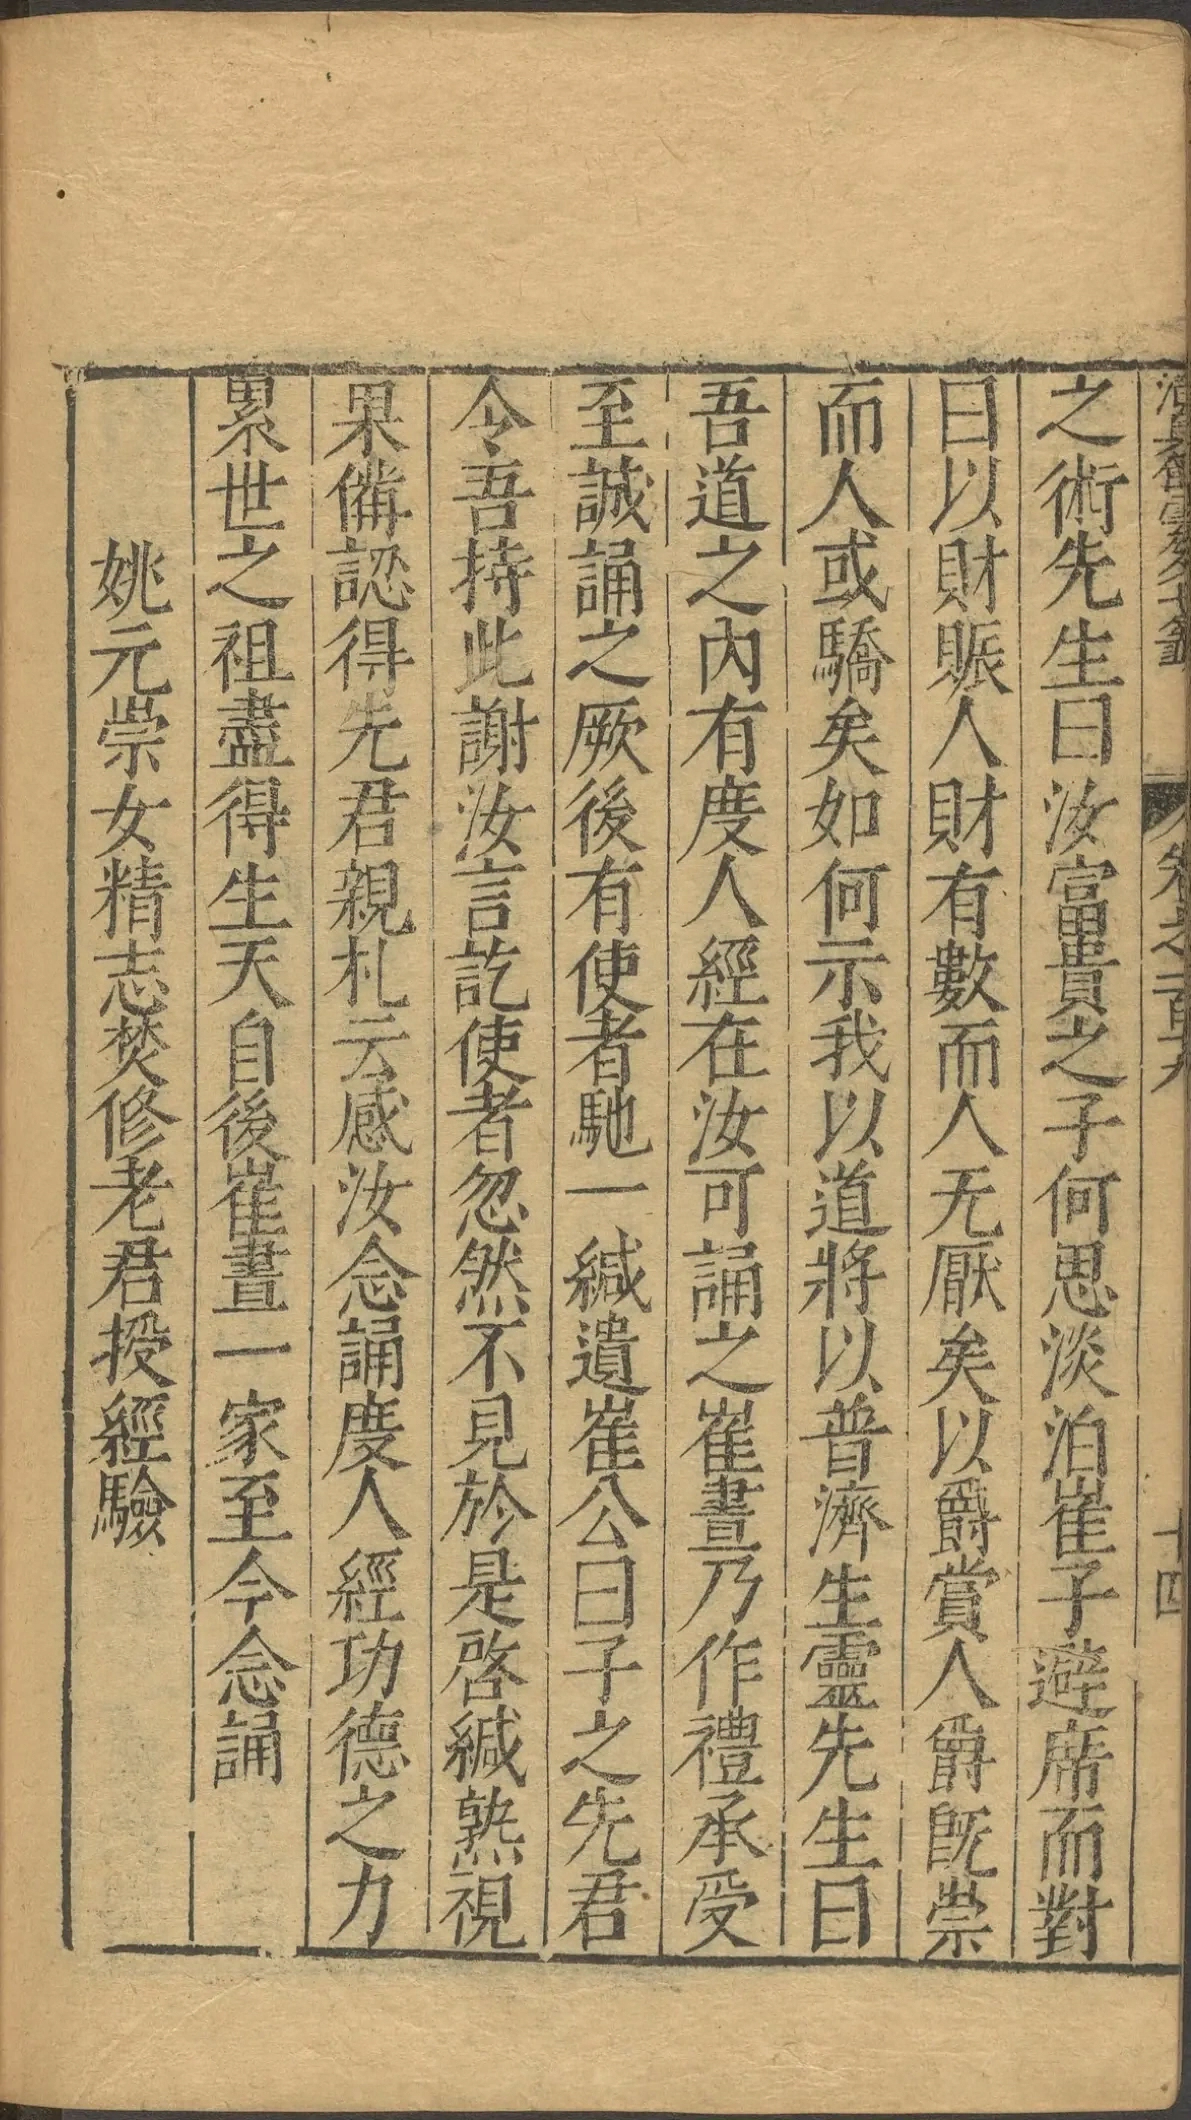 卷之一百十九
十四
之術先生曰汝富貴之子何思淡泊崔子避席而對
曰以財賑人財有數而人无厭矣以爵賞人爵旣崇
而人或驕矣如何示我以道將以普濟生靈先生曰
吾道之內有度人經在汝可誦之崔晝乃作禮承受
至誠誦之厥後有使者馳一緘遺崔公曰子之先君
令吾持此謝汝言訖使者忽然不見於是啓緘熟視
果備認得先君親札云感汝念誦度人經功德之力
累世之祖盡得生天自後崔晝一家至今念誦
姚元崇女精志焚修老君授經驗